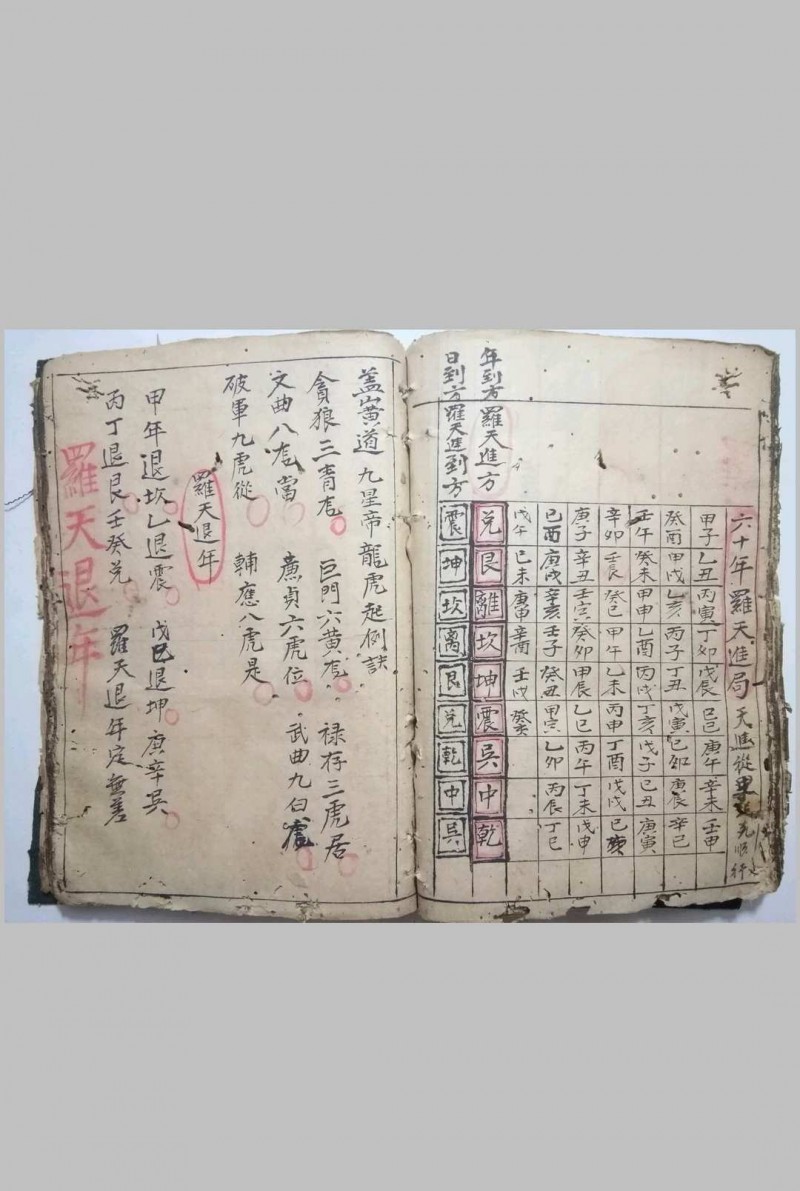 六十年羅天進局
甲子 乙丑 丙寅 丁卯 戊辰 己巳 庚午 辛未 壬申
癸酉 甲戌 乙亥 丙子 丁丑 戊寅 己卯 庚辰 辛巳
壬午 癸未 甲申 乙酉 丙戌 丁亥 戊子 己丑 庚寅
辛卯 壬辰 癸巳 甲午 乙未 丙申 丁酉 戊戌 己亥
庚子 辛丑 壬寅 癸卯 甲辰 乙巳 丙午 丁未 戊申
己酉 庚戌 辛亥 壬子 癸丑 甲寅 乙卯 丙辰 丁巳
戊午 己未 庚申 辛酉 壬戌 癸亥
年到方羅天進方
兌 艮 離 坎 坤 震 吳 中 乾
日到方羅天進到方
震 坤 坎 离 艮 兌 乾 中 吳
盖黃道 九星帝龍虎起例訣
貪狼三青尨 巨門六黃尨 禄存三虎居
文曲八尨當 亷貞六虎位 武曲九白
破軍九虎從 輔應八虎是
羅天退年
甲年退坎乙退震 戊己退坤庚辛吳
丙丁退艮壬癸兌 羅天退年定無差
羅天退年